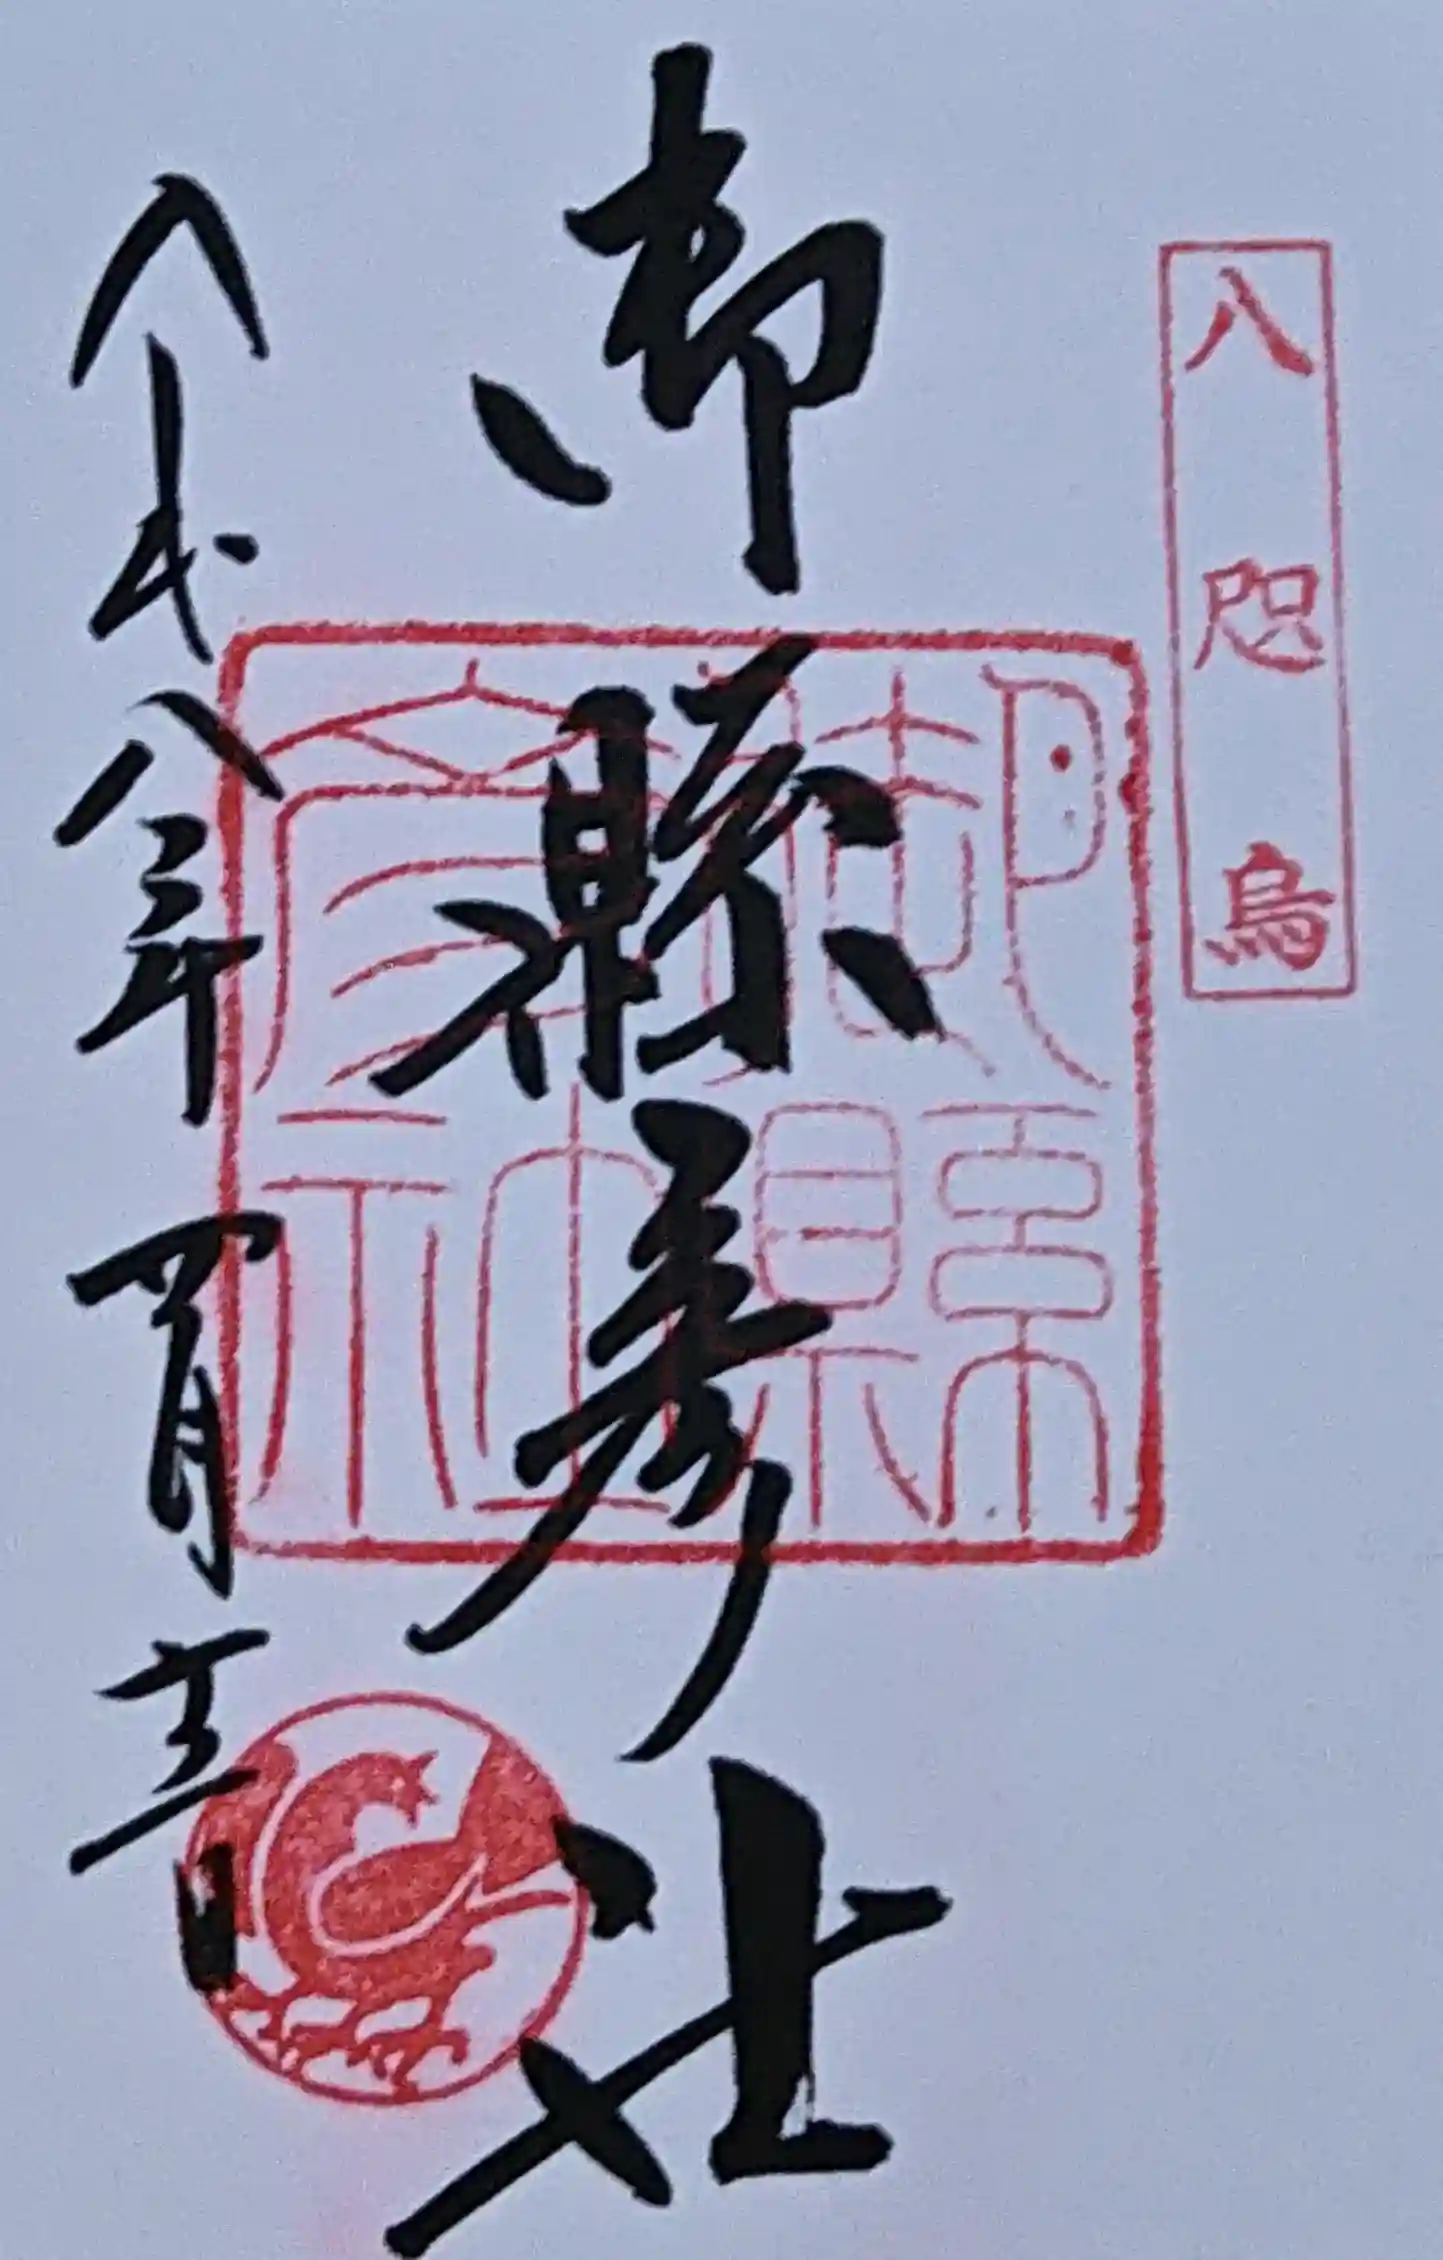 八咫烏
御縣彦社
御縣彦社
令和八年四月五日